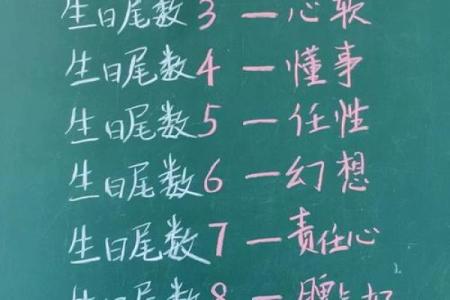 生日尾数3—心软
生日尾数4—懂事
生日尾数5—任性
生日尾数6—幻想
生日尾数7—责任心
生日尾数8—脾